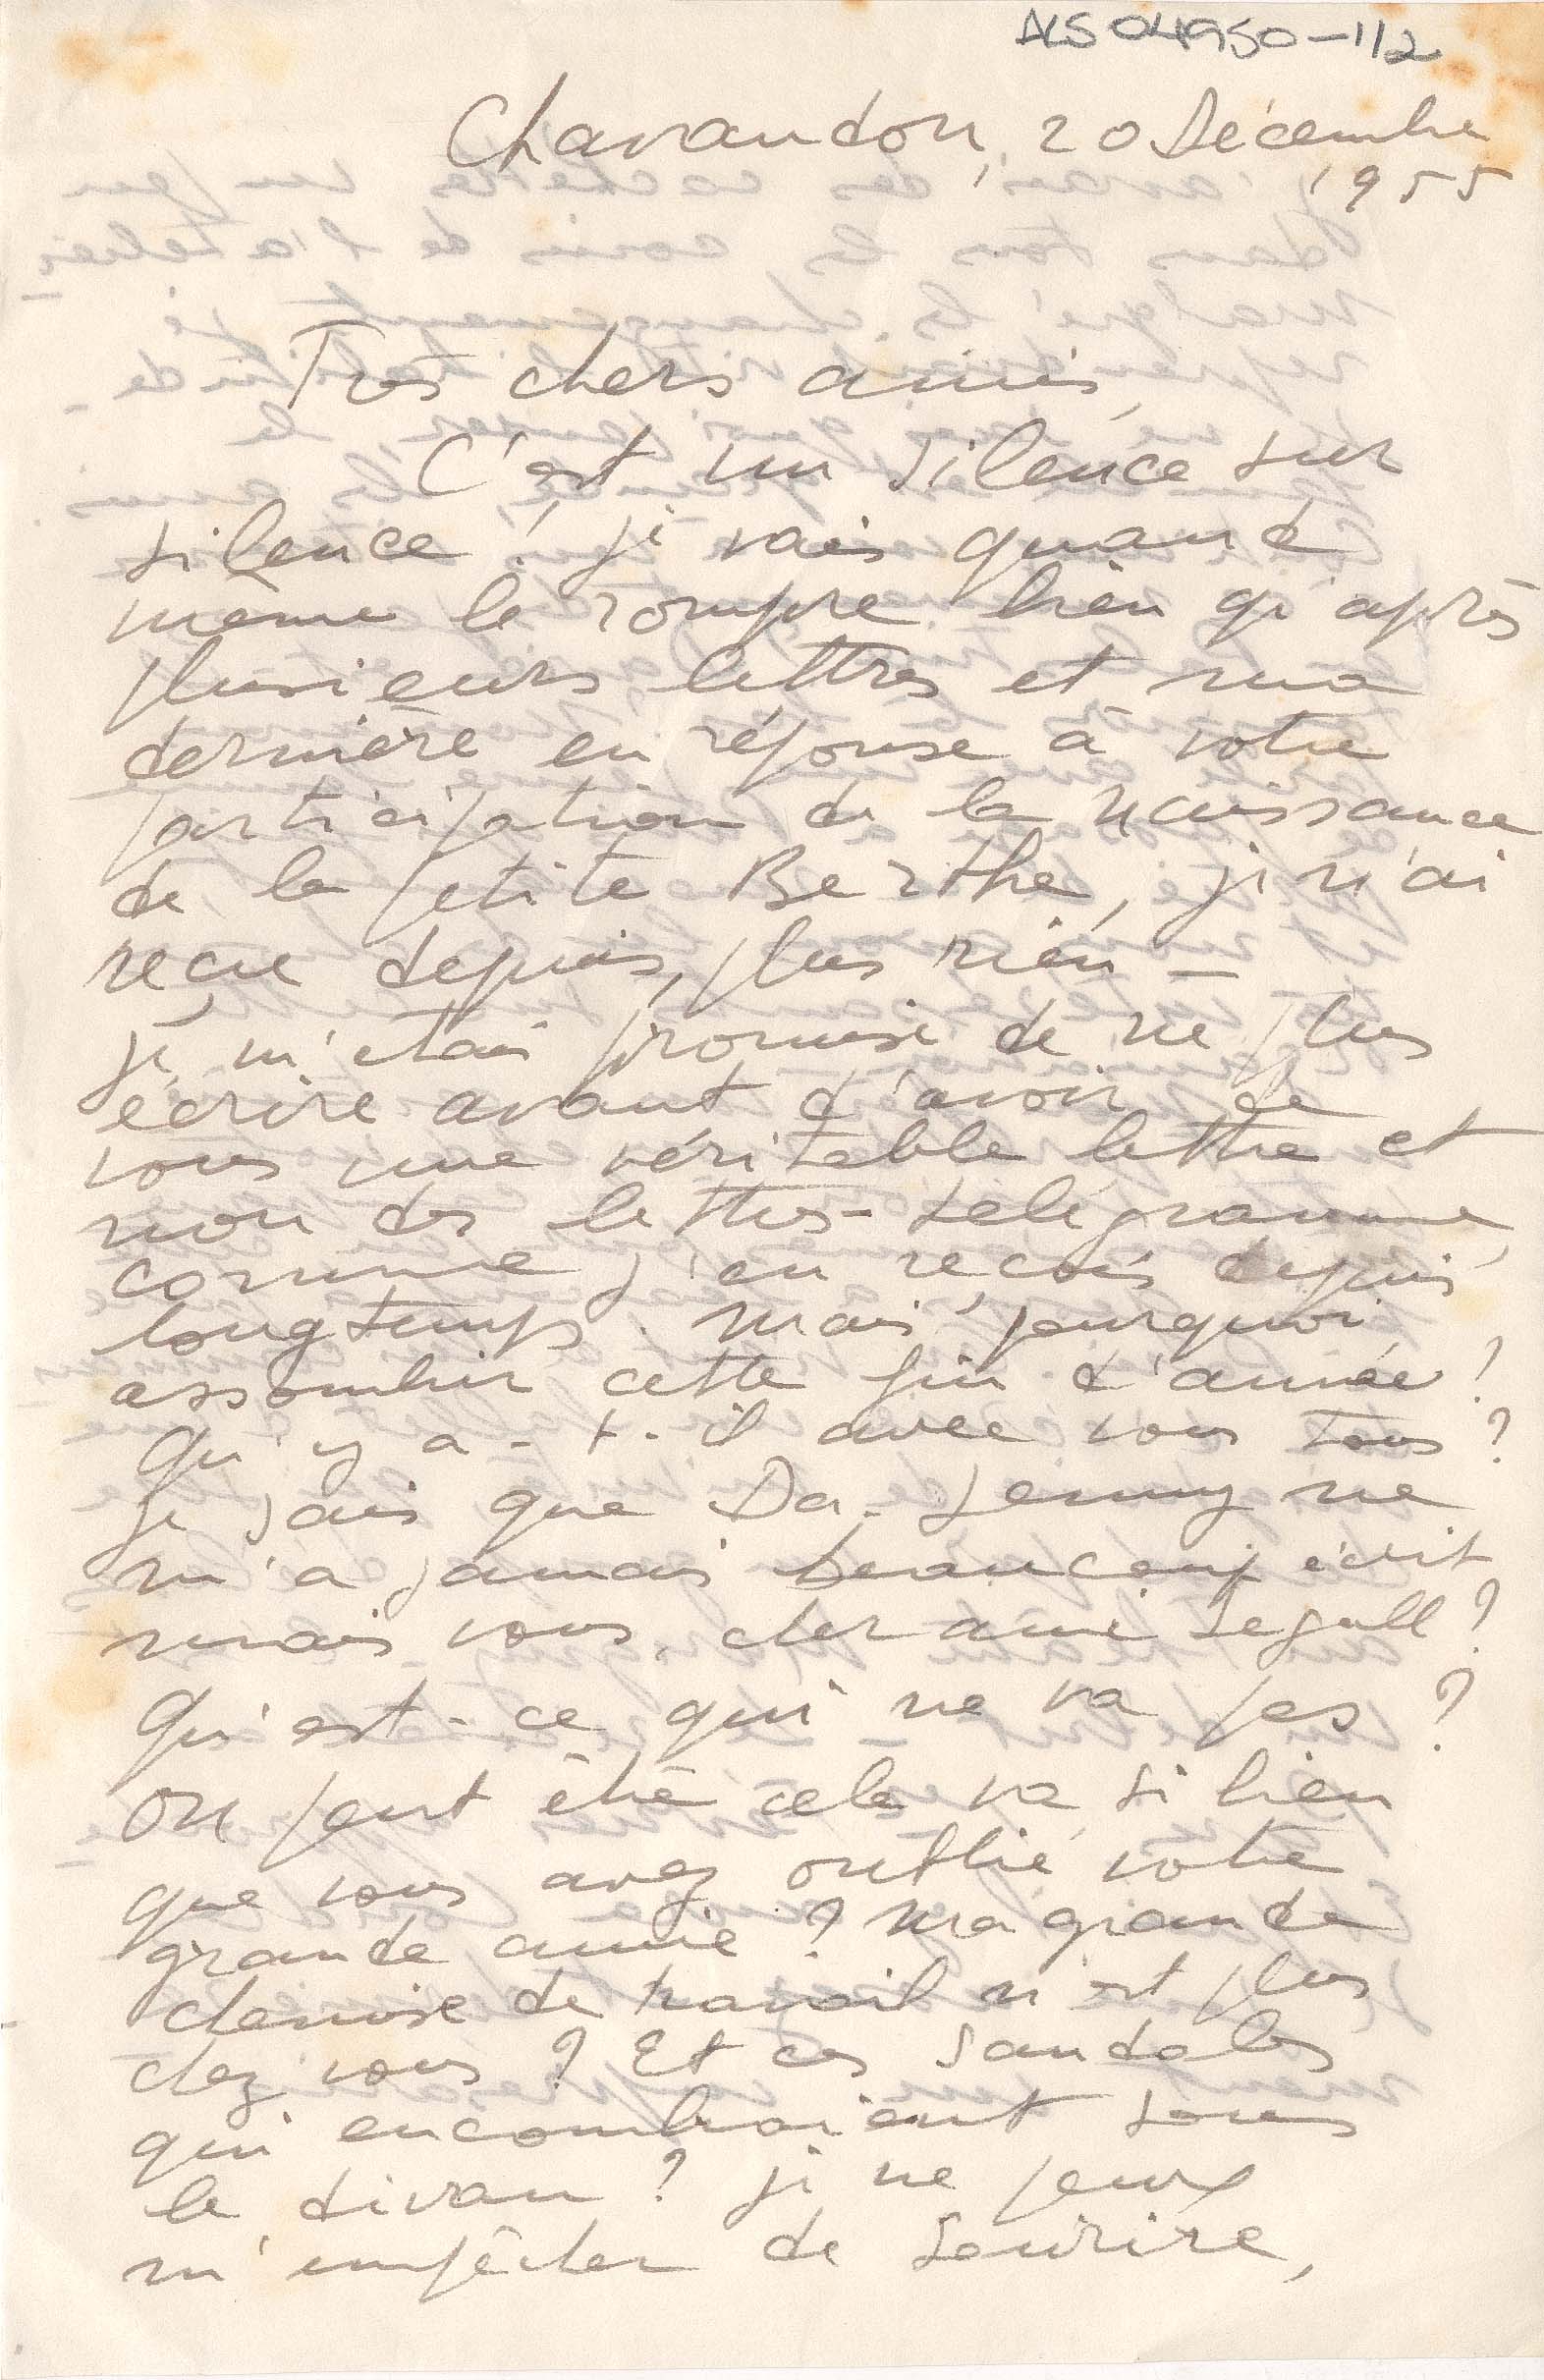 ALS 04950-1/2
Chavandon, 20 Décembre
1955
Très chers amis,
C'est un silence sur
silence! je vais quand
même le rompre bien qu'après
plusieurs lettres et ma
dernière en réponse à votre
participation de la naissance
de la petite Berthe, je n'ai
reçue depuis, plus rien –
je m'étais promise de ne plus
écrire avant d'avoir de
vous une véritable lettre et
non des lettres-télégramme,
comme j'en reçois depuis
longtemps. Mais pourquoi
assombrir cette fin d'année!
Qu'y a-t-il avec vous tous?
je sais que Da. Jenny ne
m'a jamais beaucoup écrit
mais vous, cher ami Segall?
Qu'est-ce qui ne va pas?
Ou peut être cela va si bien
que vous avez oublié votre
grande amie? Ma grande
chemise de travail n'est plus
chez vous? Et ces sandales
qui encombraient sous
le divan? je ne peux
m'empêcher de sourire,